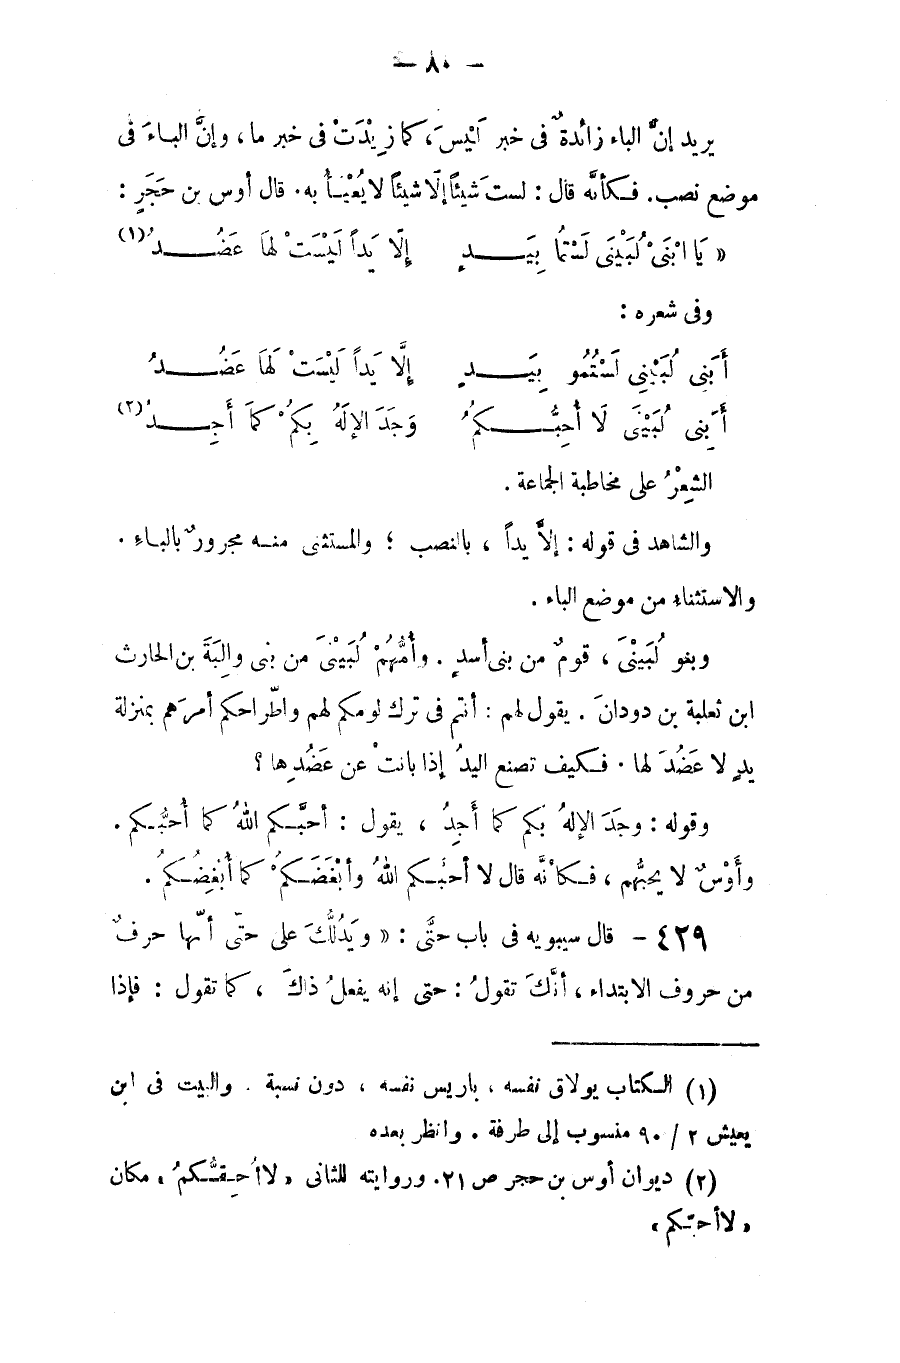 — ٨٠ —
يريد إنَّ الباء زائدةٌ فى خبر لَيْسَ، كما زِيْدَتْ فى خبر ما، وإنَّ الباءَ فى
موضع نصب. فكأنَّه قال : لستَ شيئاً إلّا شيئاً لا يُعْبَأُ به. قال أوس بن حَجَرٍ :
« يَا ابْنَىْ لُبَيْنَى لَسْتُمَا بِيَدٍ إلَّا يَداً لَيْسَتْ لهَا عَضُدُ(١)
وفى شعره :
أَبَنِى لُبَيْنِى لَسْتُمُو بِيَدٍ إلَّا يَداً لَيْسَتْ لَهَا عَضُدُ
أَبَنِى لُبَيْنَى لَا أُحِبُّكُمُ وَجَدَ الإلَهُ بِكُمْ كمَا أَجِدُ(٢)
الشِعْرُ على مخاطبة الجماعة .
والشاهد فى قوله : إلاَّ يداً ، بالنصب ؛ والمستثنى منه مجرورٌ بالباءِ .
والاستثناء من موضع الباء .
وبنو لُبَينْىَ ، قومٌ من بنى أسدٍ . وأُمُّهُمْ لُبَيْنىَ من بنى والِبَةَ بن الحارث
ابن ثعلبة بن دودانَ . يقول لهم : أنتم فى ترك لومكم لهم واطّراحكم أمرَهم بمنزلة
يدٍ لا عَضُدَ لها . فكيف تصنع اليدُ إذا بانتْ عن عَضُدِها ؟
وقوله : وجَدَ الإلهُ بكم كما أَجِدُ ، يقول : أحبَّكم اللهُ كما أُحبُّكم .
وأَوْسٌ لا يحبُّهم ، فكأنَّه قال لا أحبَّكم اللهُ وأبْغَضَكمْ كما أُبْغِضُكمُ .
٤٢٩ – قال سيبويه فى باب حتَّى : « ويَدُلُّكَ على حتّى أنّها حرفٌ
من حروف الابتداء ، أنَّكَ تقولُ : حتى إنه يفعلُ ذاكَ ، كما تقول : فإذا
(١) الكتاب بولاق نفسه ، باريس نفسه ، دون نسبة . والبيت فى ابن
يعيش ٢ / ٩٠ منسوب إلى طرفة . وانظر بعده
(٢) ديوان أوس بن حجر ص ٢١. وروايته للثانى « لا أحِقُّكمُ » مكان
« لا أحبّكم »